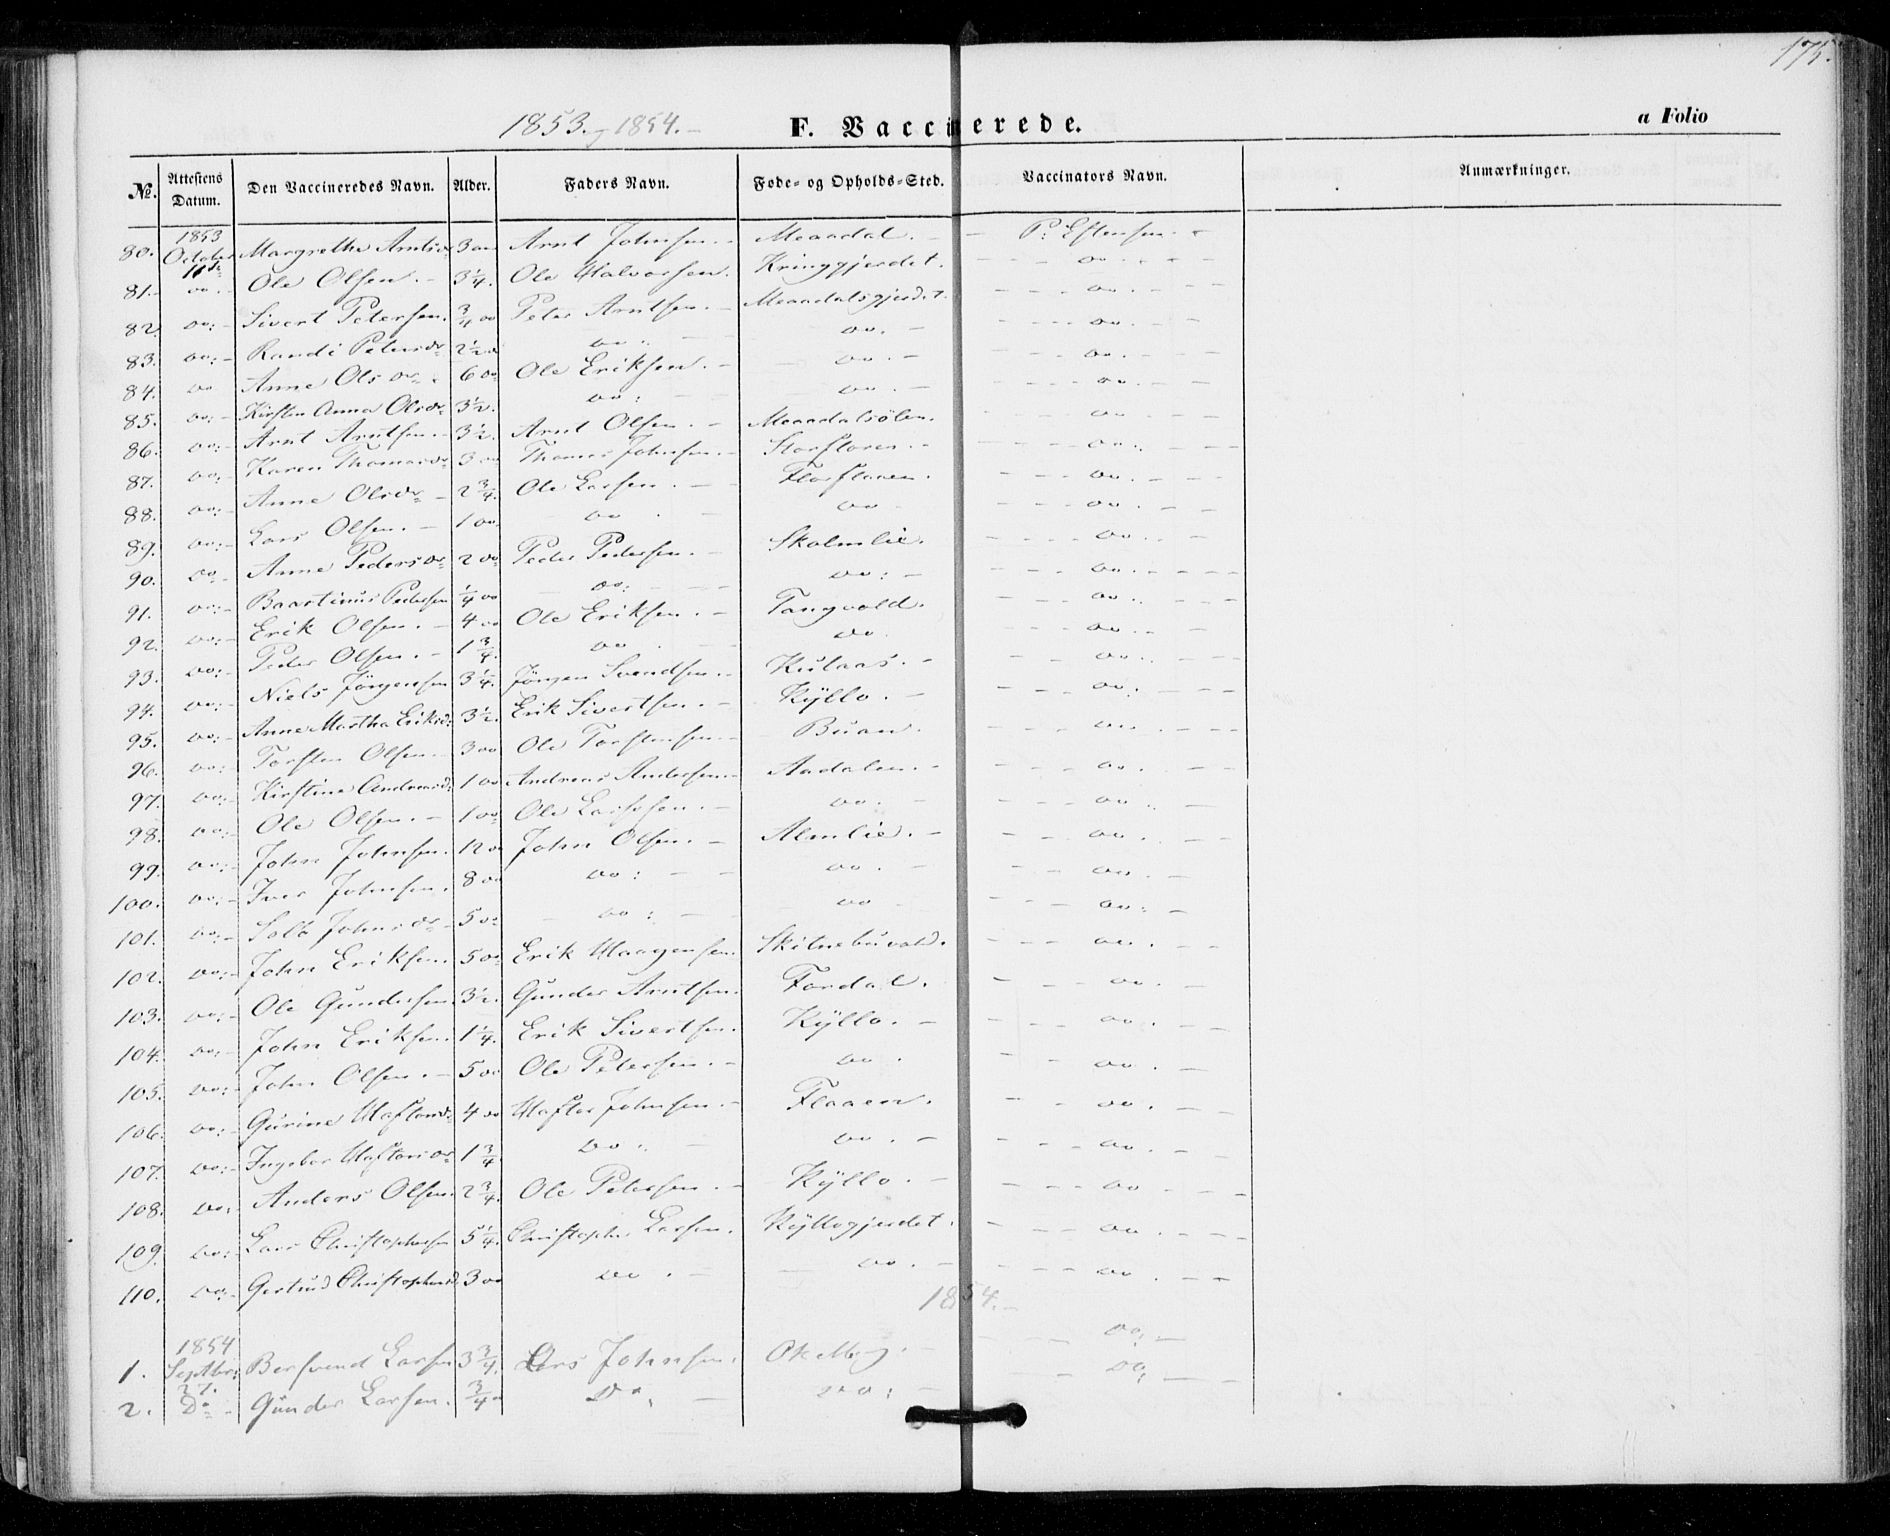 175.
1853 og 1854. F. Vaccinerede. a Folio
№. Attestens Datum. Den Vaccineredes Navn. Alder. Faders Navn. Føde- og Opholds-Sted. Vaccinators Navn. Anmærkninger.
80. 1853 October 11te Margrethe Arntsdr 3 aar Arnt Johnsen. Meaadal. P: Estensen.
81. do. Ole Olsen. 3 1/4. Ole Halvorsen. Kringgjerdet. do.
82 do: Sivert Petersen. 3/4 do Peter Arntsen. Meaadalsgjerdet. do.
83. do: Randi Petersdr 2 1/2 do do: do. do.
84. do Anne Olsdr. 6 do Ole Eriksen. do. do.
85. do: Kirsten Anna Olsdr 3 1/2. do: do. do.
86. do: Arnt Arntsen. 3 1/2. Arnt Olsen. Meaadalsölen. do.
87. do: Karen Thomasdr 3 do Thomas Johnsen. Storfloren. do.
88. do: Anne Olsdr 2 3/4. Ole Larsen. Florflaaen. do.
89. do: Lars Olsen. 1 do do. do do.
90. do. Anne Pedersdr 2 do Peder Pedersen. Skolmlie. do.
91. do: Baartinus Pedersen 1/4 do do: do: do.
92. do: Erik Olsen. 4 do Ole Eriksen. Tangvold. do.
93. do: Peder Olsen. 1 3/4. do. do. do.
94. do: Niels Jörgensen 3 1/4. Jörgen Svendsen. Kulaas. do.
95. do: Anne Martha Eriksd: 3 1/2. Erik Sivertsen. Kÿllo. do.
96. do: Torsten Olsen 3 do Ole Torstensen. Buan. do.
97. do: Kirstine Andreasd: 1 do Andreas Andersen. Aadalen. do.
98. do: Ole Olsen. 1 do Ole Larssen. do. do.
99. do: John Johnsen. 12 do John Olsen. Almlie. do.
100. do: Iver Johnsen. 8 do do: do. do.
101. do: Johnsdr 5 do do: do do:
102. do: John Eriksen. 5 do Erik Haagensen. Skitnebuvold. do.
103. do: Ole Gundersen. 3 1/2. Gunder Arntsen. Fordal. do.
104. do: John Eriksen. 1 1/4. Erik Sivertsen. Kÿllo. do.
105. do: John Olsen. 5 do Ole Petersen. do. do.
106. do: Gurine Haftorsdr 4 do Haftor Johnsen. Flaaen. do.
107. do: Ingebor Haftorsdr 1 3/4. do: do. do.
108. do: Anders Olsen. 2 3/4. Ole Petersen. Kÿllo. do
109. do: Lars Christophersen 5 1/4. Christopher Larsen. Kÿllogjerdet. do.
110. do: Gertrud Christophersd. 3 do do. do. do.
1854.
1. 1854 Septbr: 27. Bersvend Larsen 3 3/4. Lars Johnsen. do:
2. Do Gunder Larsen. 3/4 Do. do: do: